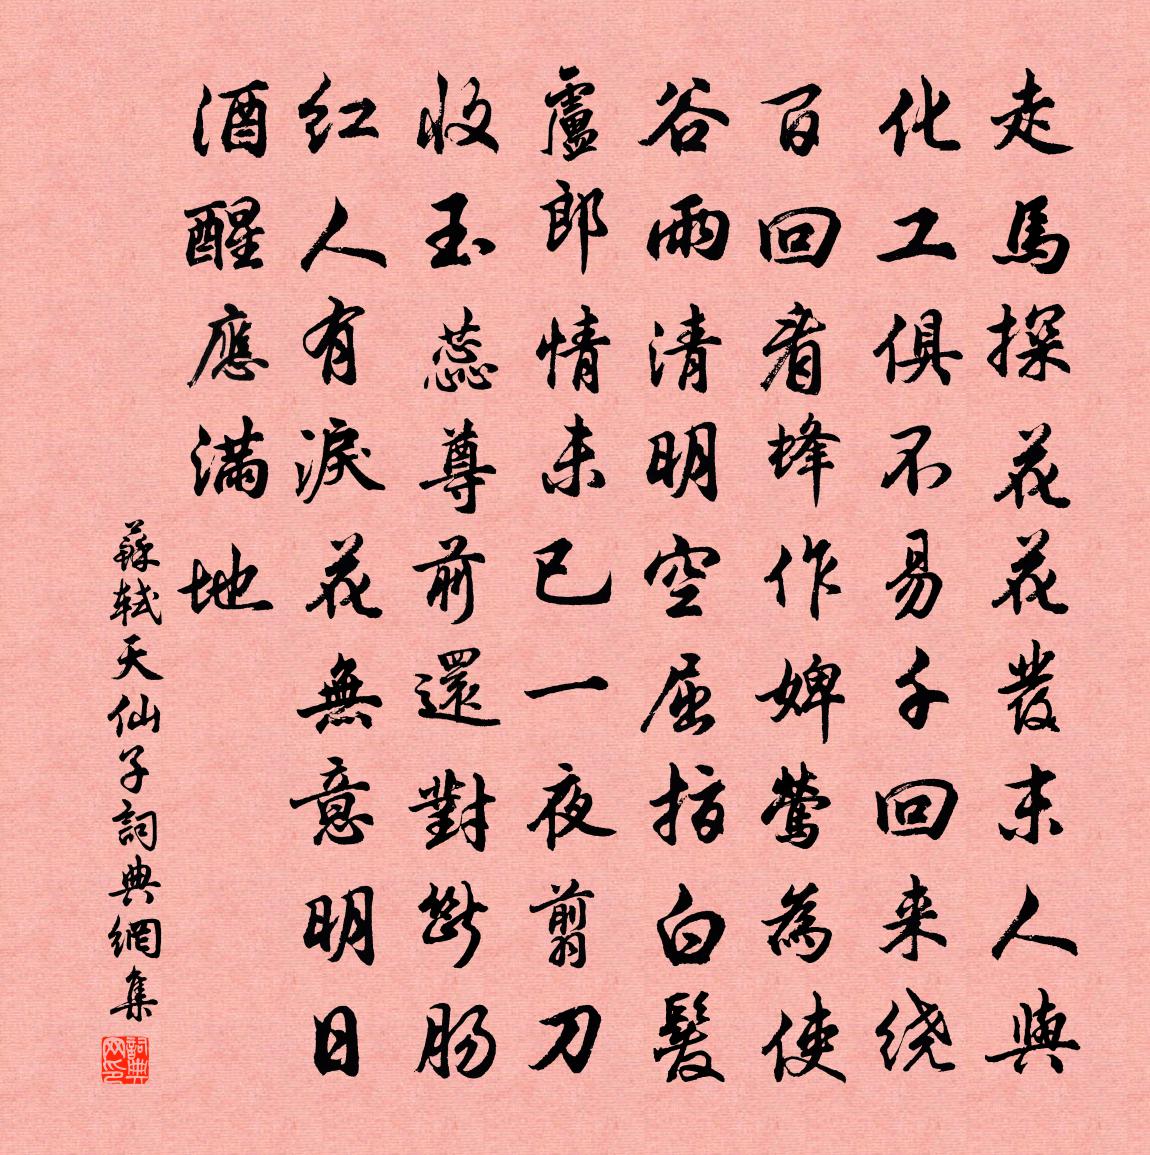 走馬探花花發未人與
化工俱不易千回来绕
百回看蜂作婢莺為使
谷雨清明空屈指白髮
盧郎情未已一夜翦刀
收玉蕊尊前還對斷肠
红人有淚花無意明日
酒醒應满地
蘇轼天仙子詞典網集
詞典网印